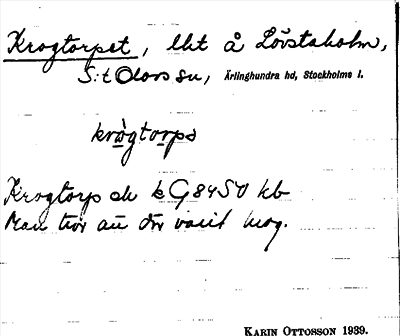 Krogtorpet, lht å Lövstaholm,
S:t Olovs sn, Ärlinghundra hd, Stockholms l.
krògtorps
Krogtorp sk k G84SV kb
Man tror att där varit krog.
KARIN OTTOSSON 1939.